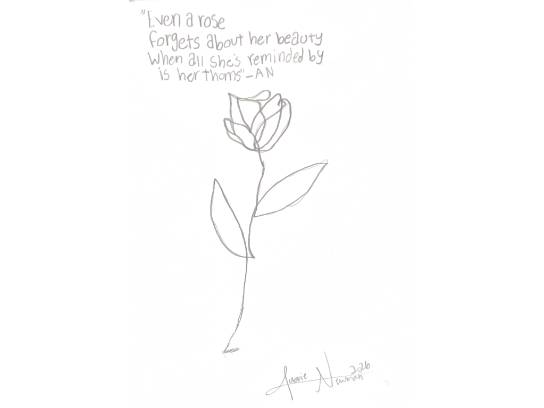 "Even a rose
forgets about her beauty
When all she's reminded by
is her thorns" -AN
Newman